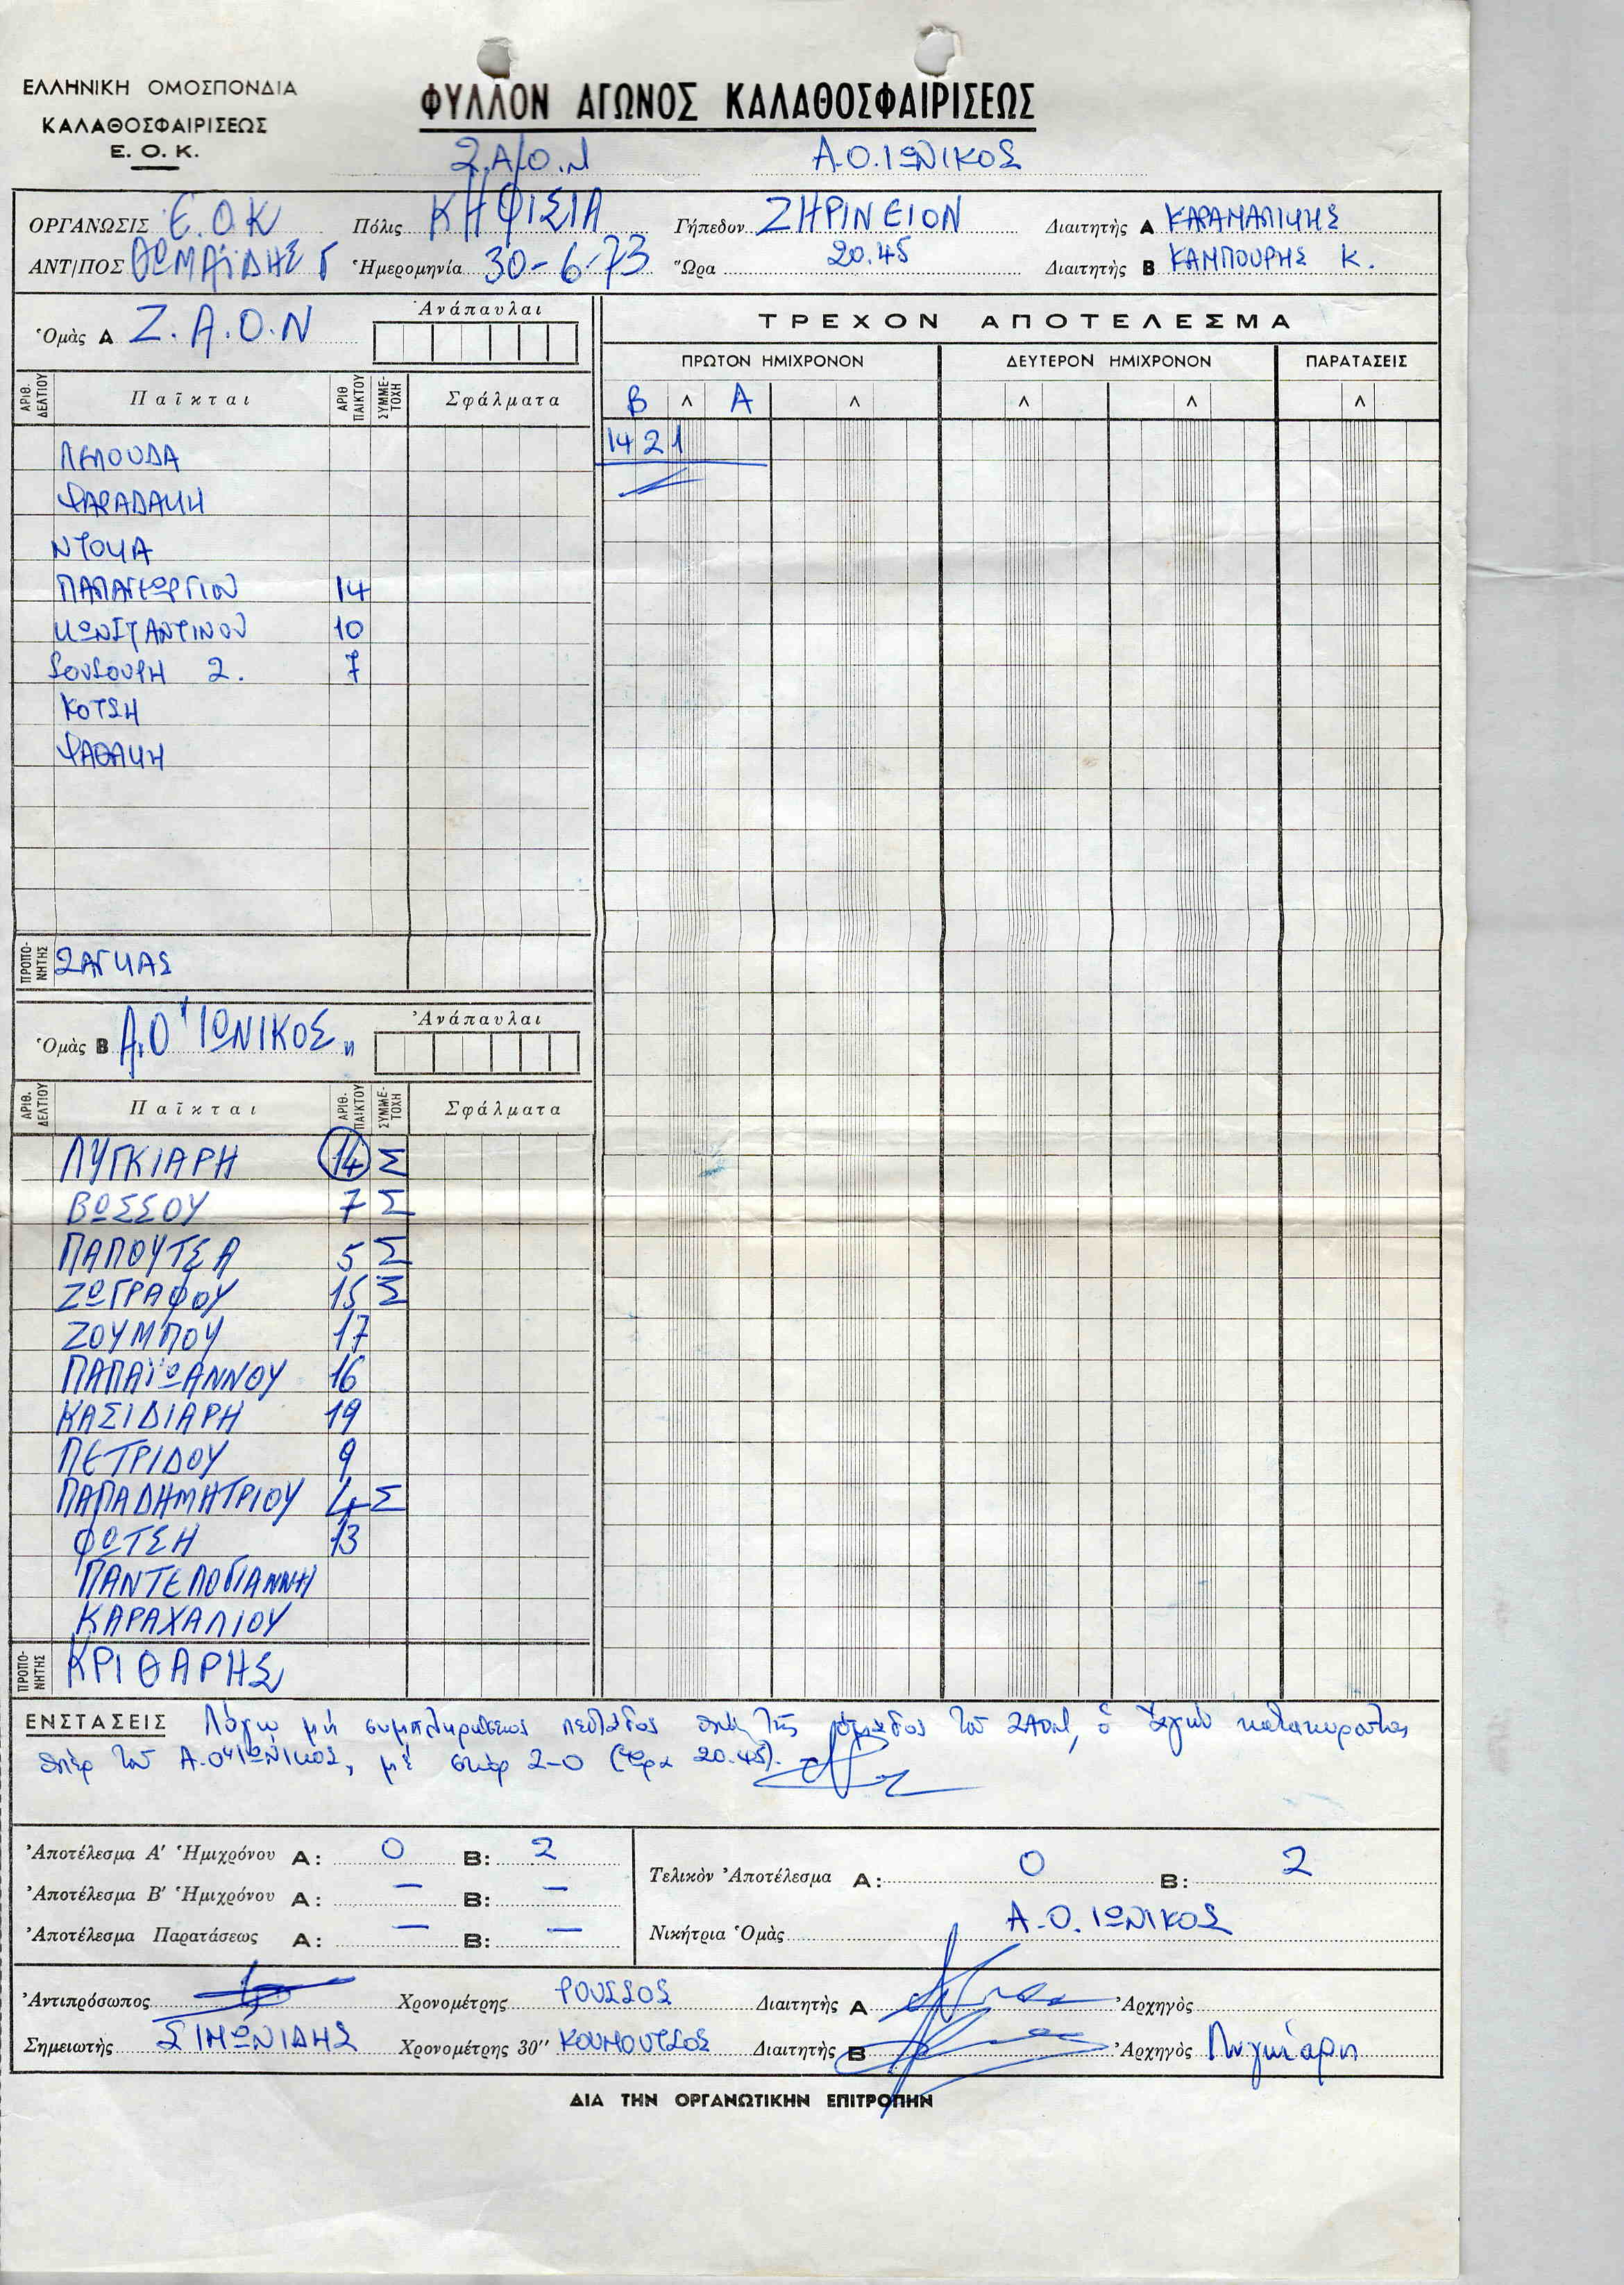 ΕΛΛΗΝΙΚΗ ΟΜΟΣΠΟΝΔΙΑ
ΚΑΛΑΘΟΣΦΑΙΡΙΣΕΩΣ
Ε. Ο. Κ.
ΦΥΛΛΟΝ ΑΓΩΝΟΣ ΚΑΛΑΘΟΣΦΑΙΡΙΣΕΩΣ
Ζ.Α.Ο.Ν Α.Ο.ΙΩΝΙΚΟΣ
ΟΡΓΑΝΩΣΙΣ Ε.Ο.Κ Πόλις ΚΗΦΙΣΙΑ Γήπεδον ΖΗΡΙΝΕΙΟΝ Διαιτητὴς Α ΚΑΡΑΜΑΛΙΚΗΣ
ΑΝΤ/ΠΟΣ ΘΩΜΑΪΔΗΣ Γ Ἡμερομηνία 30-6-73 Ὥρα 20.45 Διαιτητὴς Β ΚΑΜΠΟΥΡΗΣ Κ.
Ὁμὰς Α Ζ.Α.Ο.Ν Ἀνάπαυλαι
ΤΡΕΧΟΝ ΑΠΟΤΕΛΕΣΜΑ
ΠΡΩΤΟΝ ΗΜΙΧΡΟΝΟΝ ΔΕΥΤΕΡΟΝ ΗΜΙΧΡΟΝΟΝ ΠΑΡΑΤΑΣΕΙΣ
ΑΡΙΘ. ΔΕΛΤΙΟΥ Παῖκται ΑΡΙΘ ΠΑΙΚΤΟΥ ΣΥΜΜΕΤΟΧΗ Σφάλματα
Β Λ Α Λ Λ Λ Λ
14 2 1
ΛΕΛΟΥΔΑ
ΨΑΡΑΔΑΚΗ
ΝΤΟΚΑ
ΠΑΠΑΓΕΩΡΓΙΟΥ 14
ΚΩΝΣΤΑΝΤΙΝΟΥ 10
ΣΟΥΣΟΥΡΗ 2. 7
ΚΟΤΣΗ
ΨΑΘΑΚΗ
ΠΡΟΠΟΝΗΤΗΣ ΖΑΓΚΑΣ
Ὁμὰς Β Α.Ο "ΙΩΝΙΚΟΣ" Ἀνάπαυλαι
ΑΡΙΘ. ΔΕΛΤΙΟΥ Παῖκται ΑΡΙΘ. ΠΑΙΚΤΟΥ ΣΥΜΜΕΤΟΧΗ Σφάλματα
ΛΥΓΚΙΑΡΗ 14 Σ
ΒΩΣΣΟΥ 7 Σ
ΠΑΠΟΥΤΣΑ 5 Σ
ΖΩΓΡΑΦΟΥ 15 Σ
ΖΟΥΜΠΟΥ 17
ΠΑΠΑΪΩΑΝΝΟΥ 16
ΚΑΣΙΔΙΑΡΗ 19
ΠΕΤΡΙΔΟΥ 9
ΠΑΠΑΔΗΜΗΤΡΙΟΥ 4 Σ
ΦΩΤΣΗ 13
ΠΑΝΤΕΛΟΓΙΑΝΝΗ
ΚΑΡΑΧΑΛΙΟΥ
ΠΡΟΠΟΝΗΤΗΣ ΚΡΙΘΑΡΗΣ
ΕΝΣΤΑΣΕΙΣ Λόγω μὴ συμπληρώσεως πεντάδος ὑπὸ τῆς ὁμάδος τοῦ ΖΑΟΝ, ὁ ἀγὼν κατακυροῦται
ὑπὲρ τοῦ Α.Ο "ΙΩΝΙΚΟΣ, μὲ σκὸρ 2-0 (ὥρα 20.45).
Ἀποτέλεσμα Α' Ἡμιχρόνου Α: 0 Β: 2
Ἀποτέλεσμα Β' Ἡμιχρόνου Α: — Β: —
Ἀποτέλεσμα Παρατάσεως Α: — Β: —
Τελικὸν Ἀποτέλεσμα Α: 0 Β: 2
Νικήτρια Ὁμὰς Α.Ο. ΙΩΝΙΚΟΣ
Ἀντιπρόσωπος Χρονομέτρης ΡΟΥΣΣΟΣ Διαιτητὴς Α Ἀρχηγὸς
Σημειωτὴς ΣΙΜΩΝΙΔΗΣ Χρονομέτρης 30'' ΚΟΥΜΟΥΤΣΟΣ Διαιτητὴς Β Ἀρχηγὸς Λυγκιάρη
ΔΙΑ ΤΗΝ ΟΡΓΑΝΩΤΙΚΗΝ ΕΠΙΤΡΟΠΗΝ